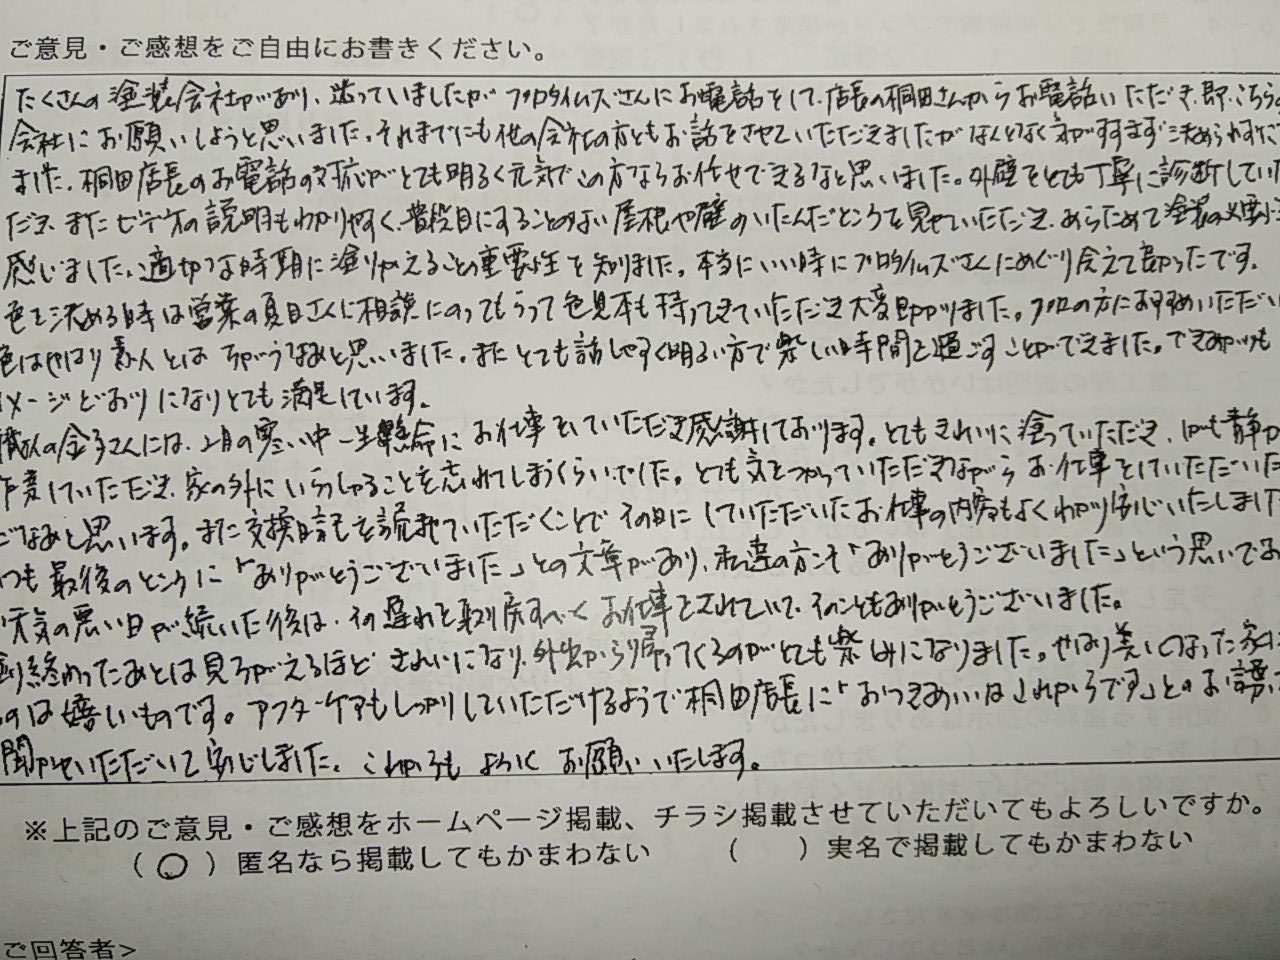 ご意見・ご感想をご自由にお書きください。
たくさんの塗装会社があり、迷っていましたがプロタイムズさんにお電話をして、店長の桐田さんからお電話いただき、即、こちらの
会社にお願いしようと思いました。それまでにも他の会社の方ともお話をさせていただきましたがなんとなく気がすすまず決められずにご
ました。桐田店長のお電話の対応がとても明るく元気でこの方ならお任せできるなと思いました。外壁をとても丁寧に診断していた
だき、またビデオの説明もわかりやすく、普段目にすることのない屋根や壁のいたんだところを見せていただき、あらためて塗装の必要に
感じました。適切な時期に塗りかえることの重要性を知りました。本当にいい時にプロタイムズさんにめぐり会えて良かったです。
色を決める時は営業の夏目さんに相談にのってもらって色見本も持ってきていただき大変助かりました。プロの方におすすめいただい
色はやはり素人とはちがうなあと思いました。またとても話しやすく明るい方で楽しい時間を過ごすことができました。できあがりも
メージどおりになりとても満足しています。
職人の金子さんには、2月の寒い中一生懸命にお仕事をしていただき感謝しております。とてもきれいに塗っていただき、しかも静か
作業していただき、家の外にいらっしゃることを忘れてしまうくらいでした。とても気をつかっていただきながらお仕事をしていただいた
ごなあと思います。また交換日記を読ませていただくことでその日にしていただいたお仕事の内容もよくわかり安心いたしました
つも最後のところに「ありがとうございました」との文章があり、私達の方こそ「ありがとうございました」という思いであ
天気の悪い日が続いた後は、その遅れを取り戻すべくお仕事をされていて、そのこともありがとうございました。
塗り終わったあとは見ちがえるほどきれいになり、外出から帰ってくるのがとても楽しみになりました。やはり美しくなった家に
のは嬉しいものです。アフターケアもしっかりしていただけるようで桐田店長に「おつきあいはこれからです」とのお話
聞かせいただいて安心しました。これからもよろしくお願いいたします。
※上記のご意見・ご感想をホームページ掲載、チラシ掲載させていただいてもよろしいですか。
(○)匿名なら掲載してもかまわない (　)実名で掲載してもかまわない
ご回答者>